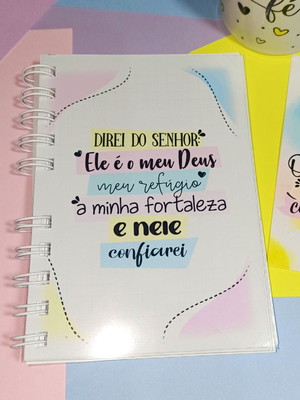 fé
DIREI DO SENHOR:
Ele é o meu Deus
meu refúgio
a minha fortaleza
e nele
confiarei